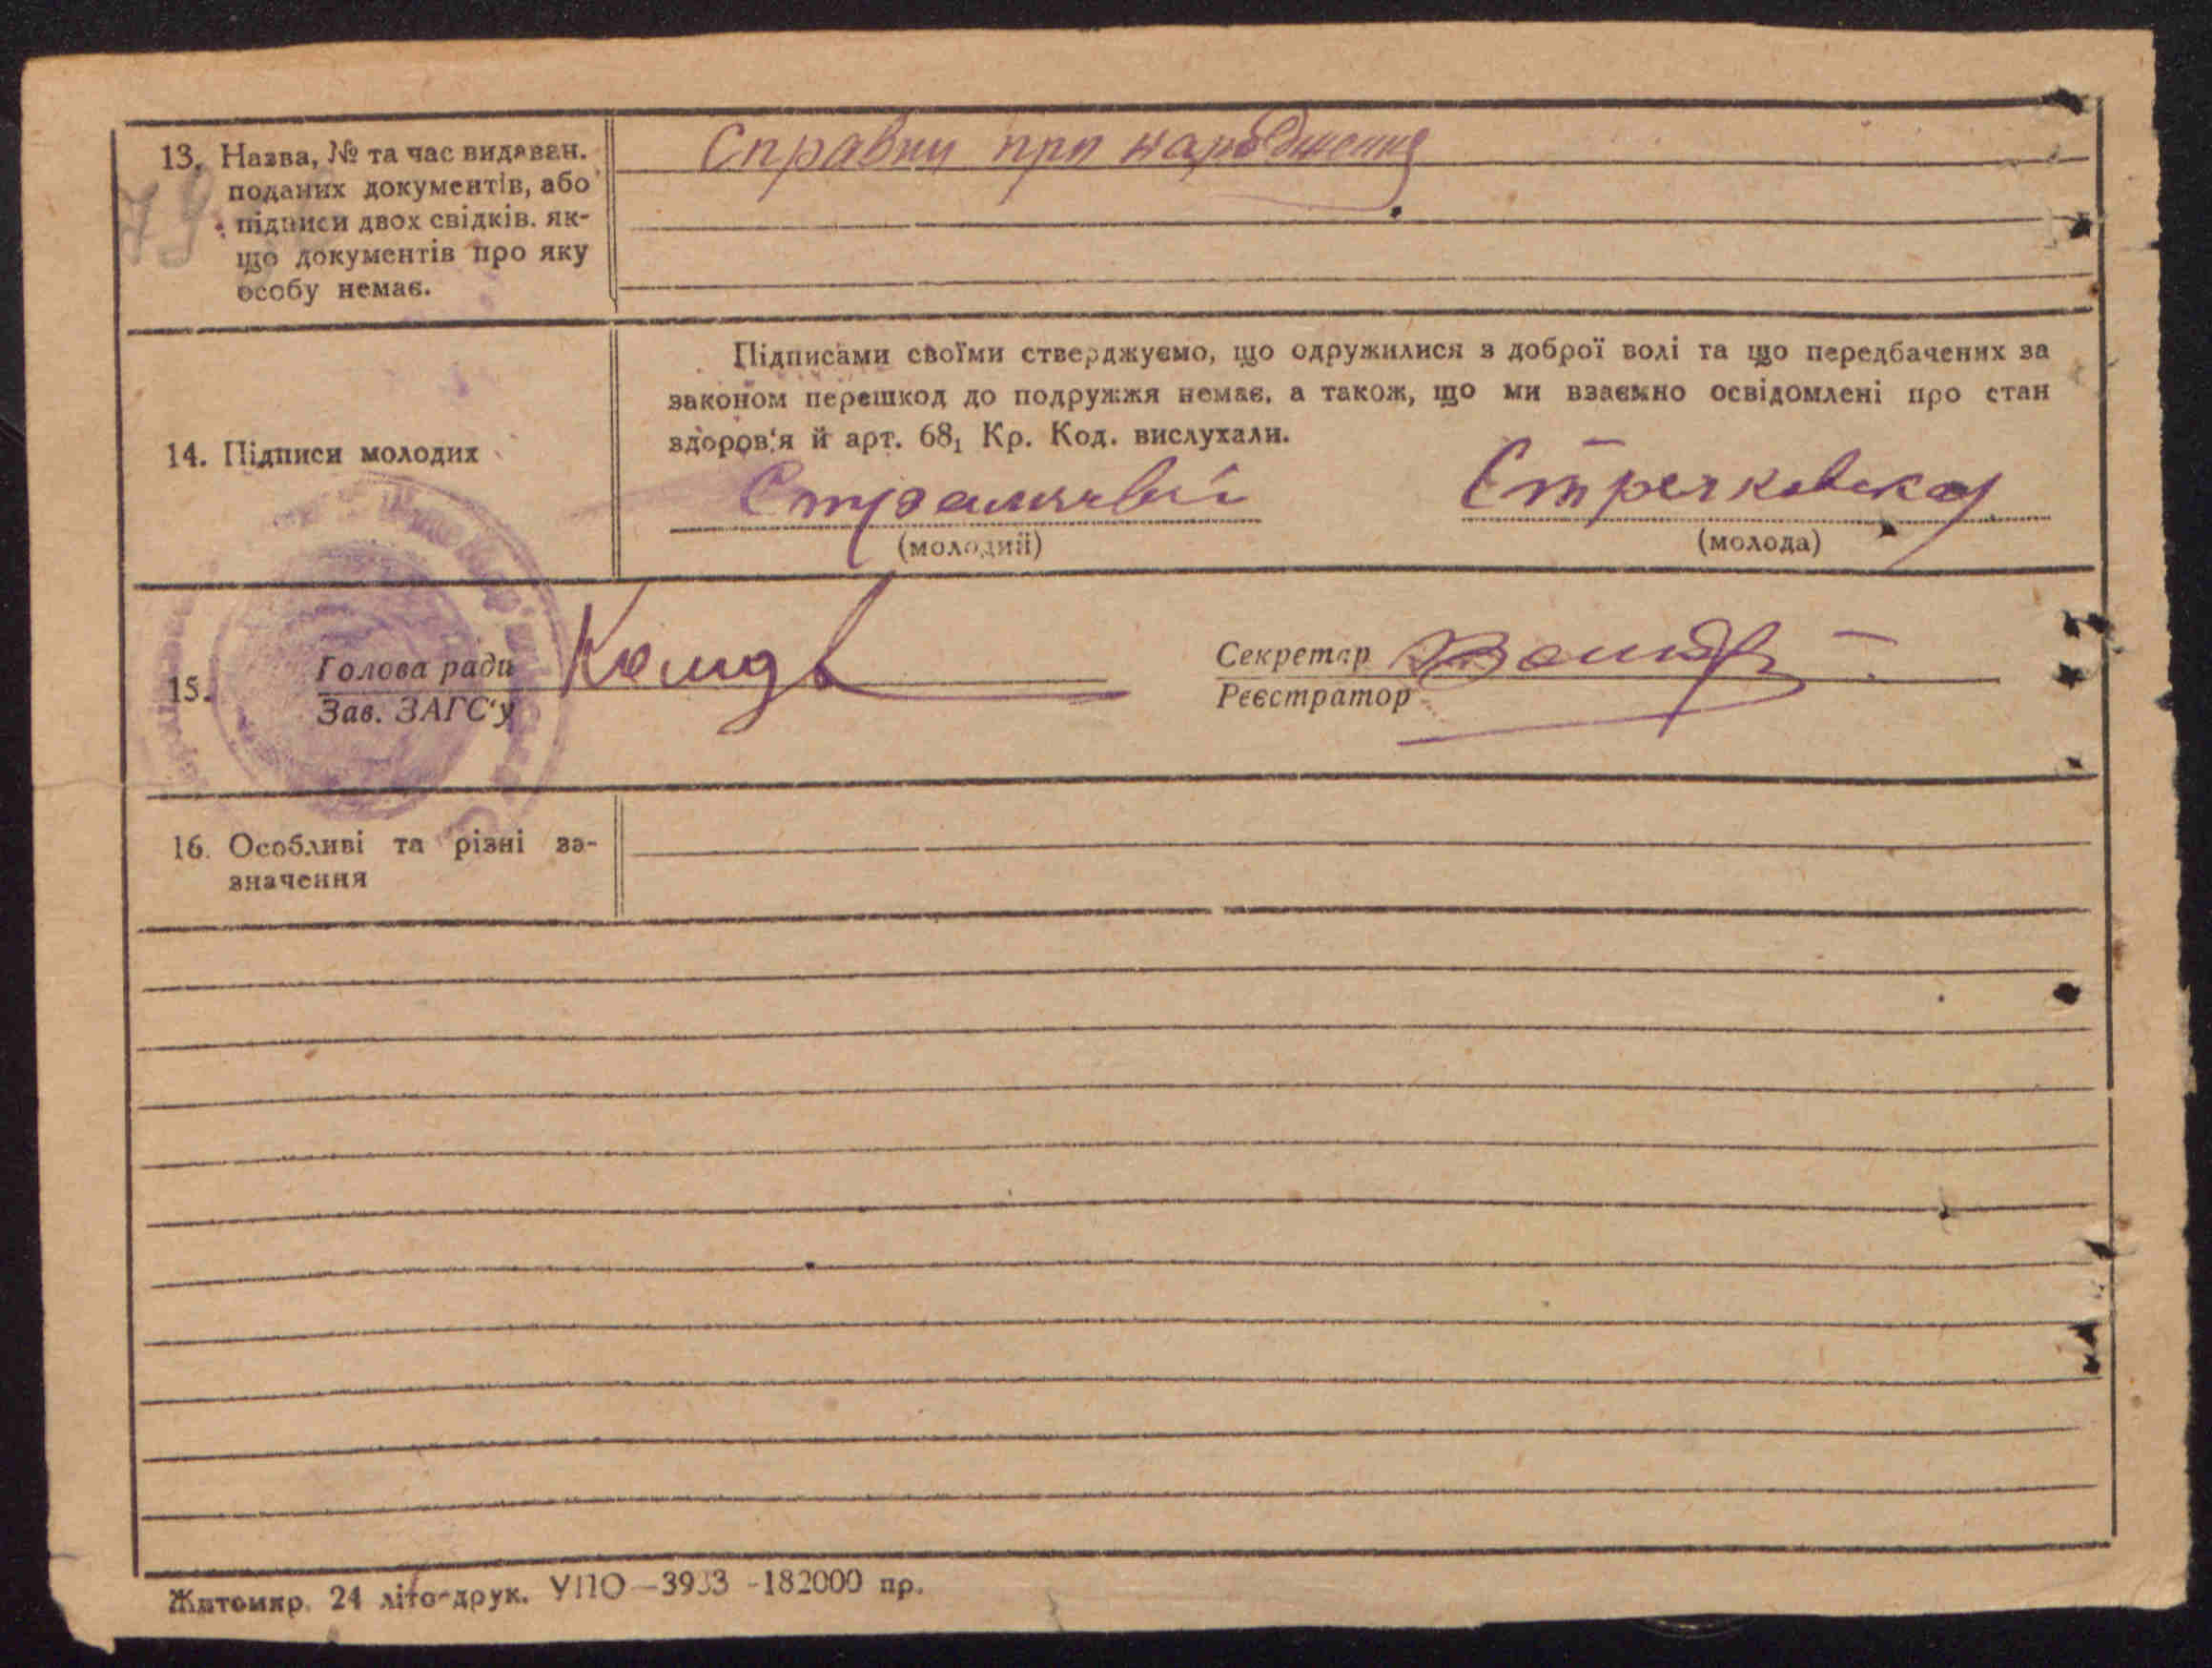 13. Назва, № та час видаван.
поданих документів, або
підписи двох свідків. як-
що документів про яку
особу немає.
Справки при народження
79
14. Підписи молодих
Підписами своїми стверджуємо, що одружилися з доброї волі та що передбачених за
законом перешкод до подружжя немає, а також, що ми взаємно освідомлені про стан
здоров'я й арт. 68₁ Кр. Код. вислухали.
(молодий)
Стречковская
(молода)
15.
Голова ради
Зав. ЗАГС'у
Секретар
Реєстратор
16. Особливі та різні за-
значення
Житомир. 24 літо-друк. УПО—3933 -182000 пр.